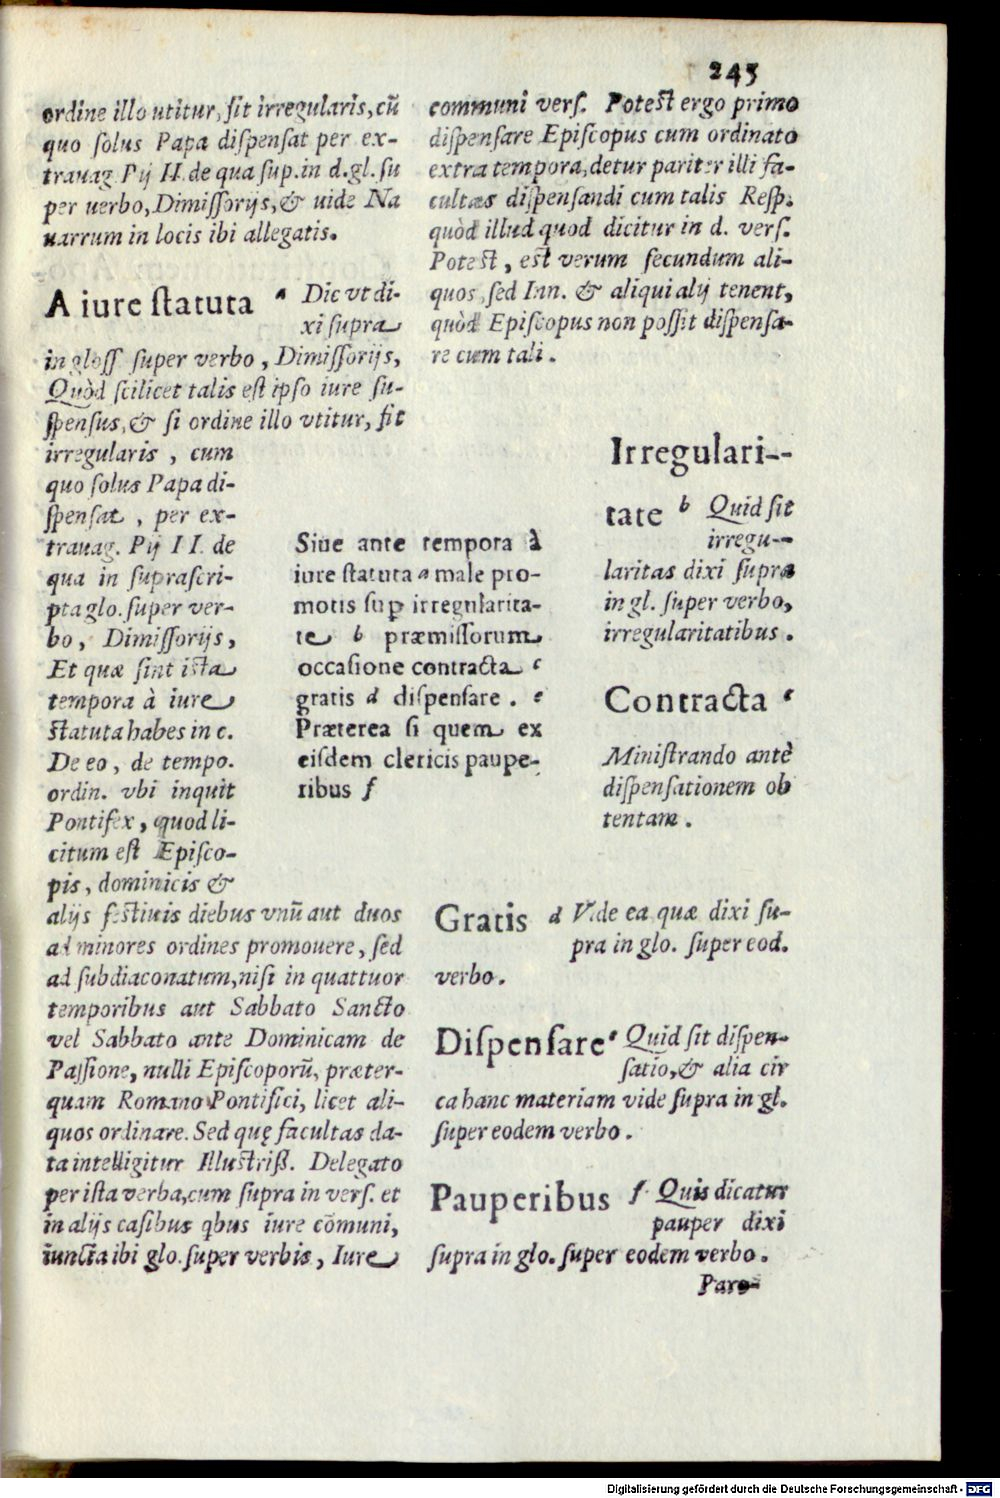 243
ordine illo utitur, sit irregularis, cũ
quo solus Papa dispensat per ex-
trauag. Pij II. de qua sup. in d. gl. su
per uerbo, Dimissorijs, & uide Na
uarrum in locis ibi allegatis.
A iure statuta a Dic vt di-
xi supra
in gloss super verbo, Dimissorijs,
Quòd scilicet talis est ipso iure su-
spensus, & si ordine illo vtitur, fit
irregularis, cum
quo solus Papa di-
spensat, per ex-
trauag. Pij II. de
qua in suprascri-
pta glo. super ver-
bo, Dimissorijs,
Et quæ sint ista
tempora à iure
statuta habes in c.
De eo, de tempo.
ordin. vbi inquit
Pontifex, quod li-
citum est Episco-
pis, dominicis &
alijs festiuis diebus vnũ aut duos
ad minores ordines promouere, sed
ad subdiaconatum, nisi in quattuor
temporibus aut Sabbato Sancto
vel Sabbato ante Dominicam de
Passione, nulli Episcoporũ, præter-
quam Romano Pontifici, licet ali-
quos ordinare. Sed quę facultas da-
ta intelligitur Illustriß. Delegato
per ista verba, cum supra in vers. et
in alijs casibus qbus iure cōmuni,
iuncta ibi glo. super verbis, Iure
Siue ante tempora à
iure statuta a male pro-
motis sup irregularita-
te b præmissorum
occasione contracta c
gratis d dispensare. e
Præterea si quem ex
eisdem clericis paupe-
ribus f
communi vers. Potest ergo primo
dispensare Episcopus cum ordinato
extra tempora, detur pariter illi fa-
cultas dispensandi cum talis Resp.
quòd illud quod dicitur in d. vers.
Potest, est verum secundum ali-
quos, sed Inn. & aliqui alij tenent,
quòd Episcopus non possit dispensa-
re cum tali.
Irregulari-
tate b Quid sit
irregu-
laritas dixi supra
in gl. super verbo,
irregularitatibus.
Contracta c
Ministrando antè
dispensationem ob
tentam.
Gratis d Vide ea quæ dixi su-
pra in glo. super eod.
verbo.
Dispensare e Quid sit dispen-
satio, & alia cir
ca hanc materiam vide supra in gl.
super eodem verbo.
Pauperibus f Quis dicatur
pauper dixi
supra in glo. super eodem verbo.
Paro-
Digitalisierung gefördert durch die Deutsche Forschungsgemeinschaft - DFG